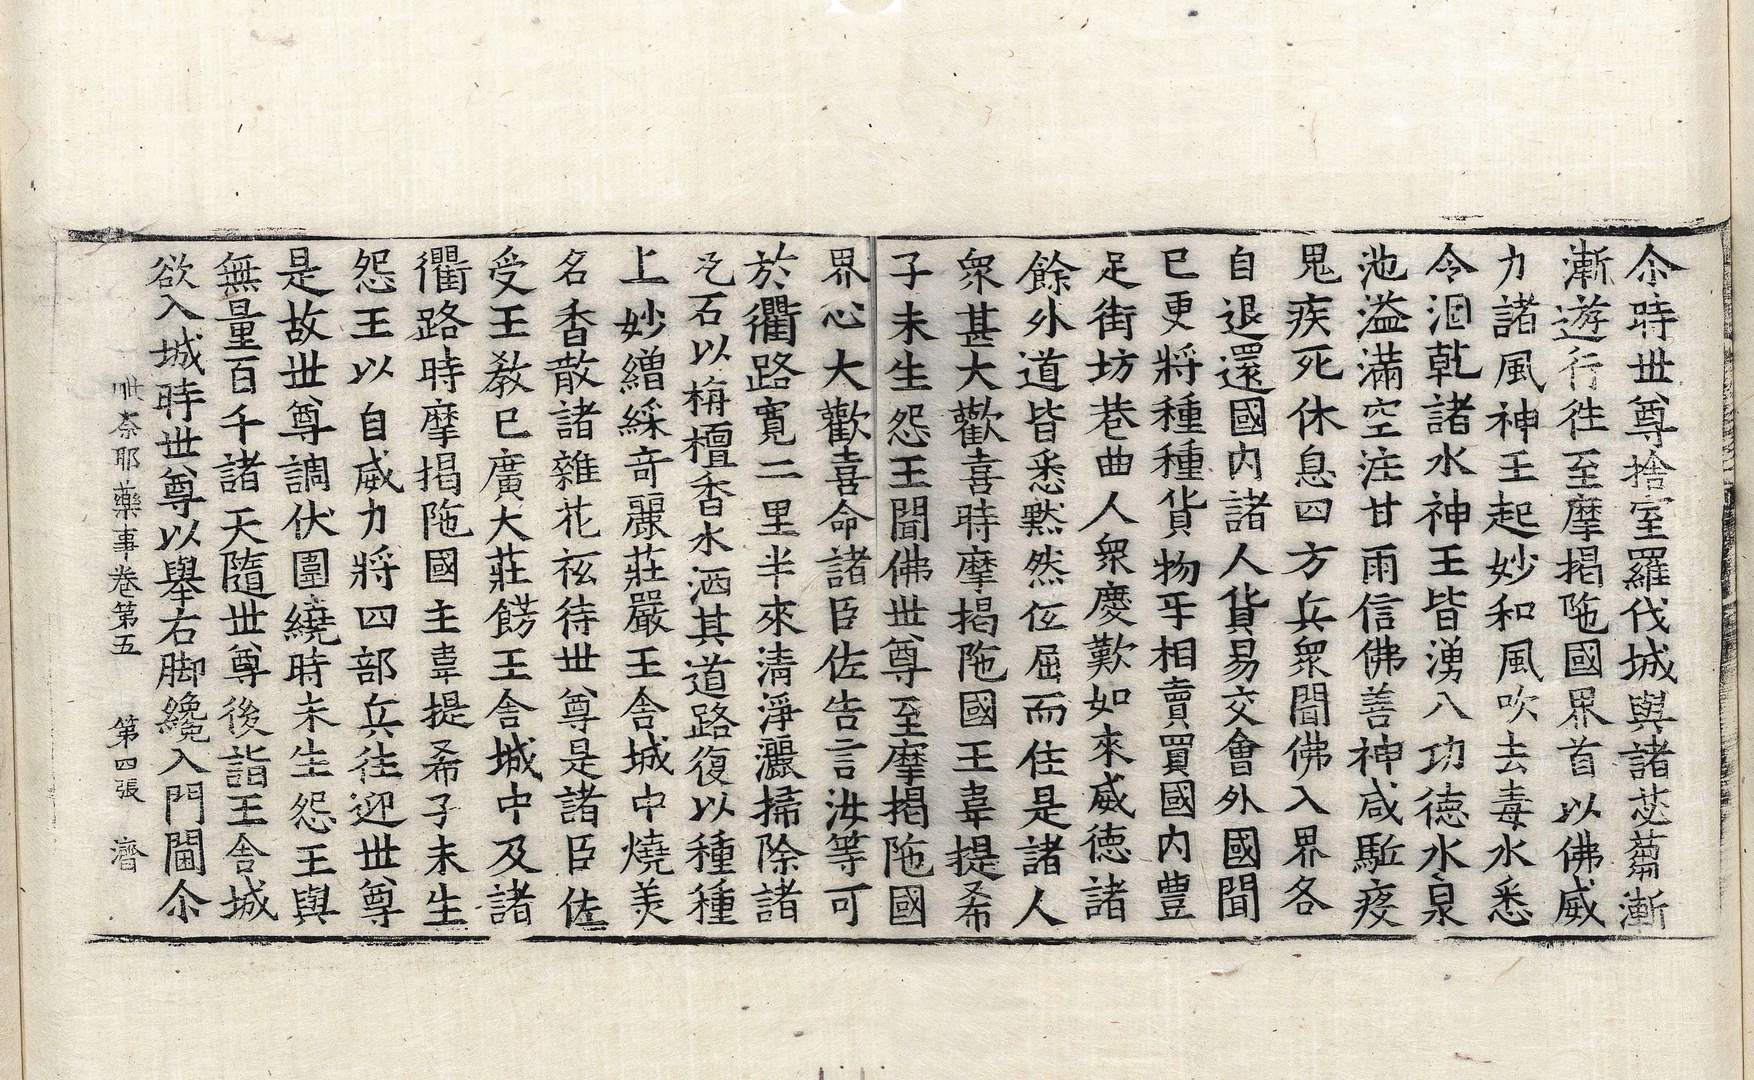 尒時世尊捨室羅伐城與諸苾蒭漸
漸遊行往至摩揭陁國界首以佛威
力諸風神王起妙和風吹去毒水悉
令涸乹諸水神王皆湧八功德水泉
池溢滿空注甘雨信佛善神咸駈疫
鬼疾死休息四方兵衆聞佛入界各
自退還國內諸人貨易交會外國聞
已更將種種貨物㸦相賣買國內豊
足街坊巷曲人衆慶歎如來威德諸
餘外道皆悉黙然伍屈而住是諸人
衆甚大歡喜時摩揭陁國王韋提希
子未生怨王聞佛世尊至摩揭陁國
界心大歡喜命諸臣佐告言汝等可
於衢路寛二里半來清淨灑掃除諸
瓦石以栴檀香水洒其道路復以種種
上妙繒綵竒麗莊嚴王舍城中燒美
名香散諸雜花祗待世尊是諸臣佐
受王敎已廣大莊餝王舍城中及諸
衢路時摩揭陁國主韋提希子未生
怨王以自威力將四部兵往迎世尊
是故世尊調伏圍繞時未生怨王與
無量百千諸天隨世尊後詣王舍城
欲入城時世尊以舉右脚纔入門閫尒
毗奈耶藥事卷第五 第四張 濟